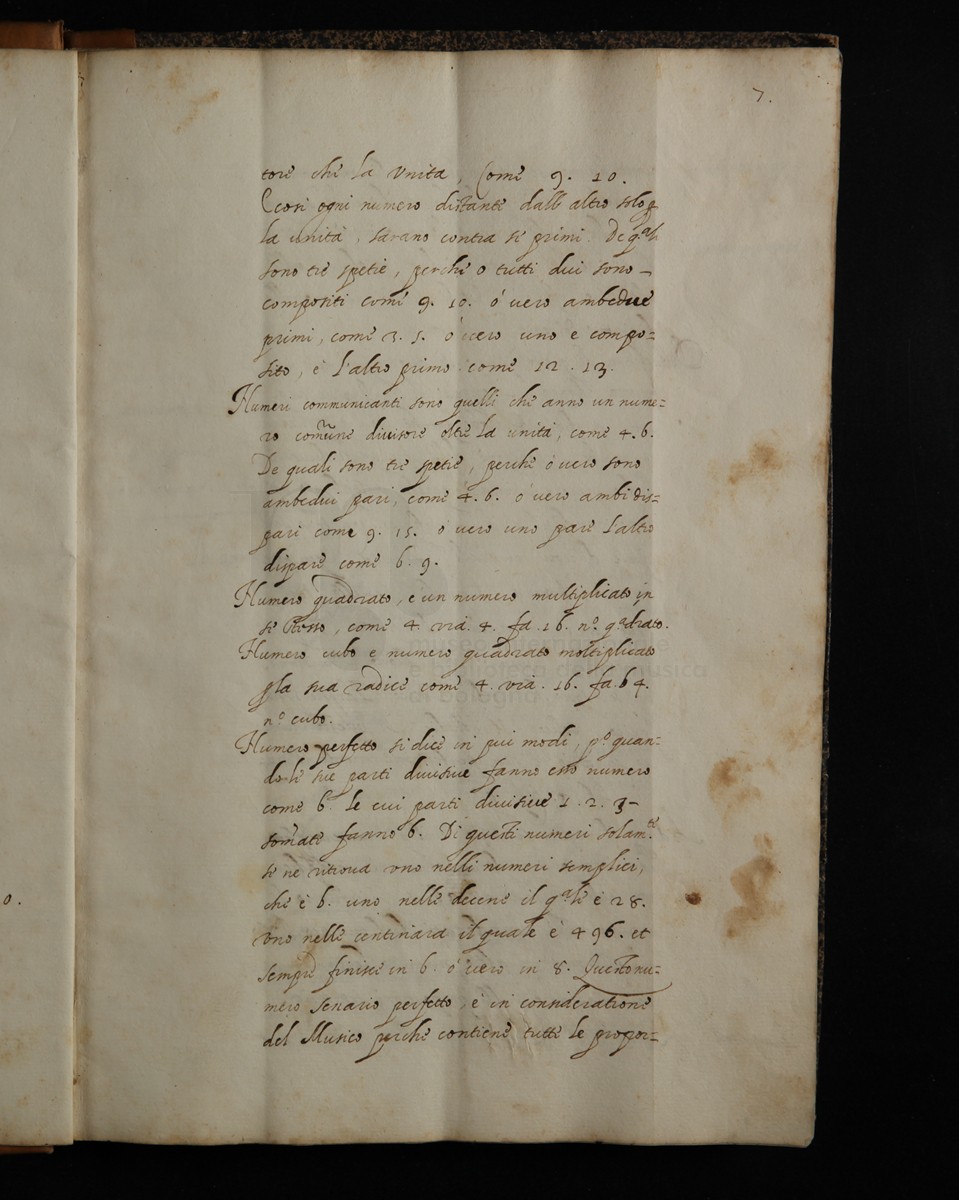 7.
tore che la Vnita, Come 9. 10.
E cosi ogni numero distante dall' altro solo p
la unità, sarano contra se primi. De q.ali
sono tre spetie, perche o tutti dui sono -
compositi come 9. 10. ó uero ambedue
primi, come 3. 5. o uero uno e compo=
sito, è l'altro primo come 12. 13.
Numeri communicanti sono quelli che anno un nume=
ro comune diuisore oltre la unità, come 4. 6.
De quali sono tre spetie, perche ó uero sono
ambedui pari, come 4. 6. o uero ambi dis=
pari come 9. 15. o uero uno pare l'altro
dispare come 6. 9.
Numero quadrato, e un numero multiplicato in
se stesso, come 4. via. 4. fa. 16. n.o q.adrato.
Numero cubo e numero quadrato moltiplicato
p la sua radice come 4. via. 16. fa. 64.
n.o cubo.
Numero perfetto si dice in piu modi, p.o quan=
do le sue parti diuisiue fanno esso numero
come 6. le cui parti diuisiue 1. 2. 3 -
somate fanno 6. Di questi numeri solam.te
se ne ritroua vno nelli numeri semplici,
che è 6. uno nelle decene il q.ale è 28.
vno nelle centinara il quale è 496. et
sempre finisce in 6. o uero in 8. Questo nu=
mero senario perfetto, è in consideratione
del Musico perche contiene tutte le propor=
0.